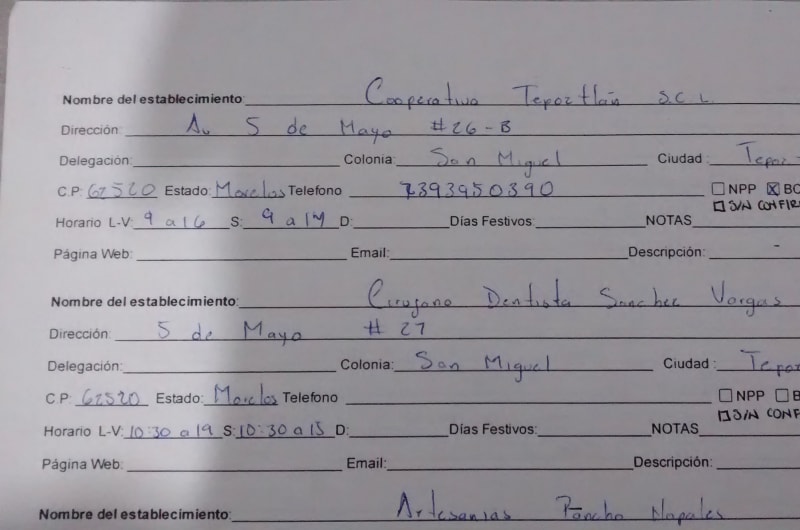 Nombre del establecimiento: Cooperativa Tepoztlán S.C.L.
Dirección: Av 5 de Mayo #26-B
Delegación: Colonia: San Miguel Ciudad: Tepoz
C.P: 62520 Estado: Morelos Telefono 7393950390 NPP
S/N CONFIR
Horario L-V: 9 a 16 S: 9 a 14 D: Días Festivos: NOTAS
Página Web: Email: Descripción: -
Nombre del establecimiento: Cirujano Dentista Sanchez Vargas
Dirección: 5 de Mayo # 27
Delegación: Colonia: San Miguel Ciudad : Tepoz
C P: 62520 Estado: Morelos Telefono NPP B
S/N CONF
Horario L-V: 10:30 a 19 S: 10:30 a 15 D: Días Festivos: NOTAS
Página Web: Email: Descripción:
Nombre del establecimiento: Artesanias Pancho Napales